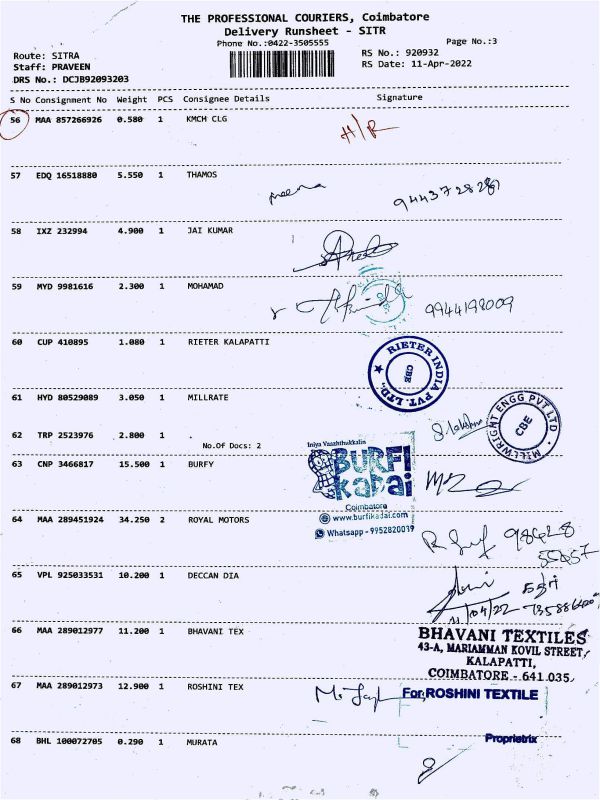 THE PROFESSIONAL COURIERS, Coimbatore
Delivery Runsheet - SITR
Phone No.:0422-3505555
Page No.:3
Route: SITRA
RS No.: 920932
Staff: PRAVEEN
RS Date: 11-Apr-2022
DRS No.: DCJB92093203
S No Consignment No Weight PCS Consignee Details Signature
56 MAA 857266926 0.580 1 KMCH CLG
H/R
57 EDQ 16518880 5.550 1 THAMOS
58 IXZ 232994 4.900 1 JAI KUMAR
59 MYD 9981616 2.300 1 MOHAMAD
9944198009
60 CUP 410895 1.080 1 RIETER KALAPATTI
RIETER INDIA PVT. LTD., CBE
61 HYD 80529089 3.050 1 MILLRATE
MILLWRIGHT ENGG PVT LTD CBE
62 TRP 2523976 2.800 1
No.Of Docs: 2
63 CNP 3466817 15.500 1 BURFY
Iniya Vaazhthukkalin
BURFI
Kadai
Coimbatore
www.burfikadai.com
Whatsapp - 9952820039
64 MAA 289451924 34.250 2 ROYAL MOTORS
98428
65 VPL 925033531 10.200 1 DECCAN DIA
66 MAA 289012977 11.200 1 BHAVANI TEX
BHAVANI TEXTILES
43-A, MARIAMMAN KOVIL STREET,
KALAPATTI,
COIMBATORE - 641 035.
67 MAA 289012973 12.900 1 ROSHINI TEX
For, ROSHINI TEXTILE
Proprietrix
68 BHL 100072705 0.290 1 MURATA